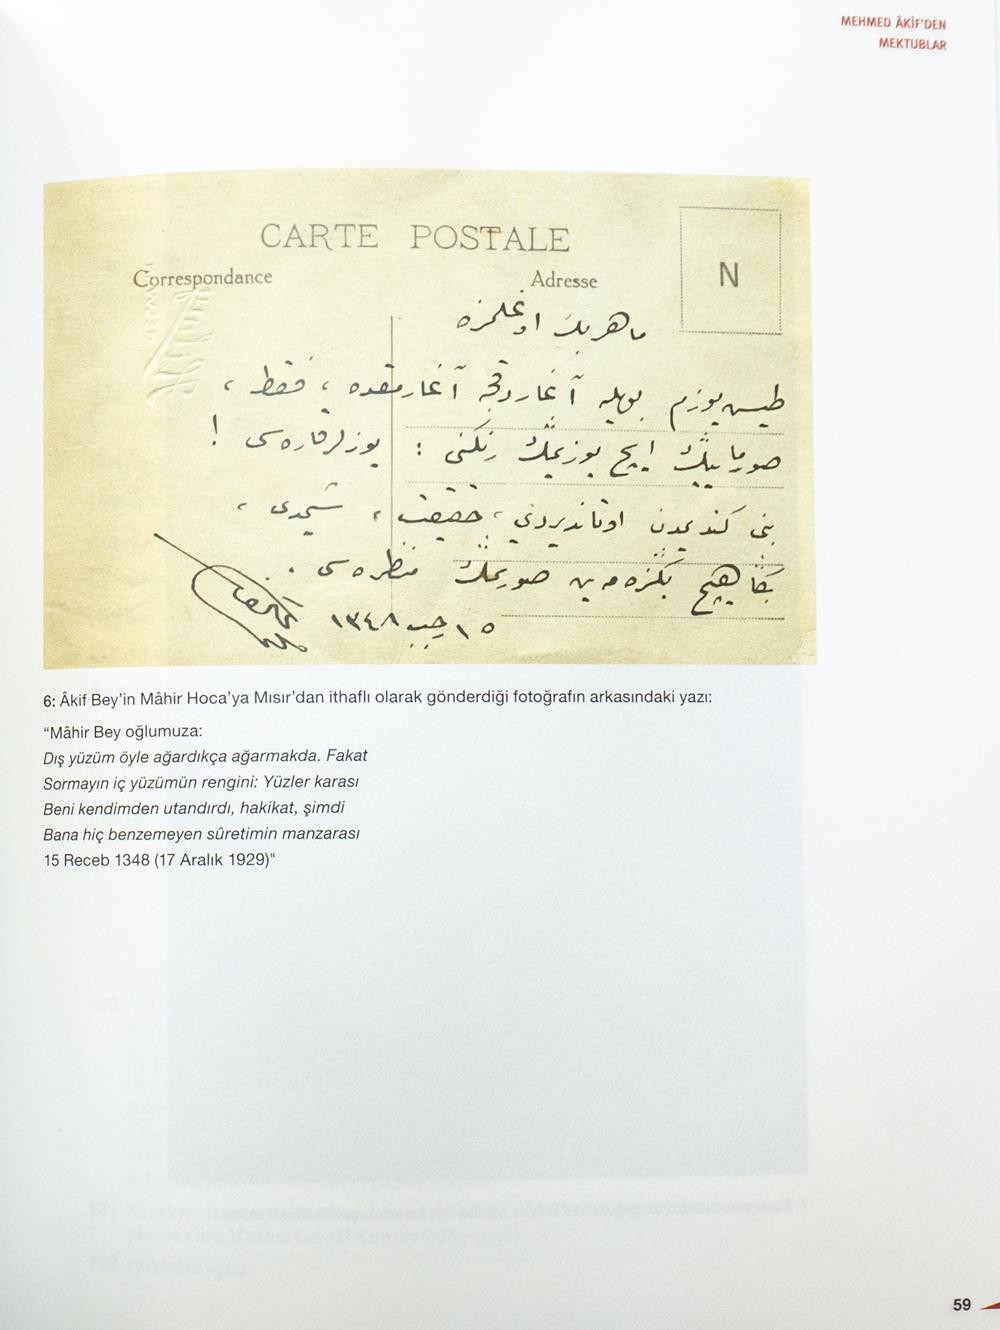 MEHMED ÂKİF'DEN
MEKTUBLAR
CARTE POSTALE
Correspondance
Adresse
N
ماهر بك اوغلمزه
طيش يوزم بويله آغاردقجه آغارمقده ، فقط ،
صورمايڭ ايچ يوزيمڭ رنگنى : يوزلر قاره‌سى !
بنى كنديمدن اوتانديردى ، حقيقت ، شيمدى ،
بڭا هيچ بڭزه‌مه‌ين صورتمڭ منظره‌سى .
١٥ رجب ١٣٤٨
6: Âkif Bey'in Mâhir Hoca'ya Mısır'dan ithaflı olarak gönderdiği fotoğrafın arkasındaki yazı:
“Mâhir Bey oğlumuza:
Dış yüzüm öyle ağardıkça ağarmakda. Fakat
Sormayın iç yüzümün rengini: Yüzler karası
Beni kendimden utandırdı, hakikat, şimdi
Bana hiç benzemeyen sûretimin manzarası
15 Receb 1348 (17 Aralık 1929)"
59